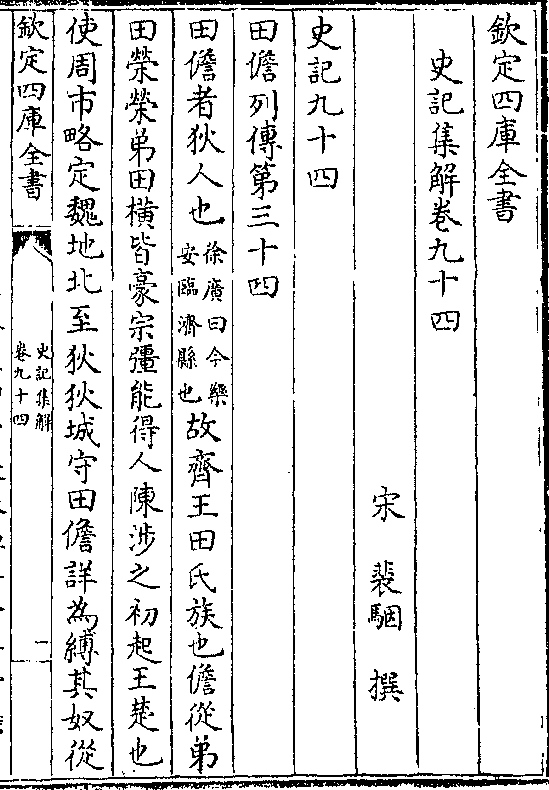 欽定四庫全書
史記集解卷九十四
宋 裴駰 撰
史記九十四
田儋列傳第三十四
田儋者狄人也徐廣曰今樂安臨濟縣也故齊王田氏族也儋從弟
田榮榮弟田橫皆豪宗彊能得人陳涉之初起王楚也
使周市略定魏地北至狄狄城守田儋詳為縛其奴從
欽定四庫全書
史記集解
卷九十四
一